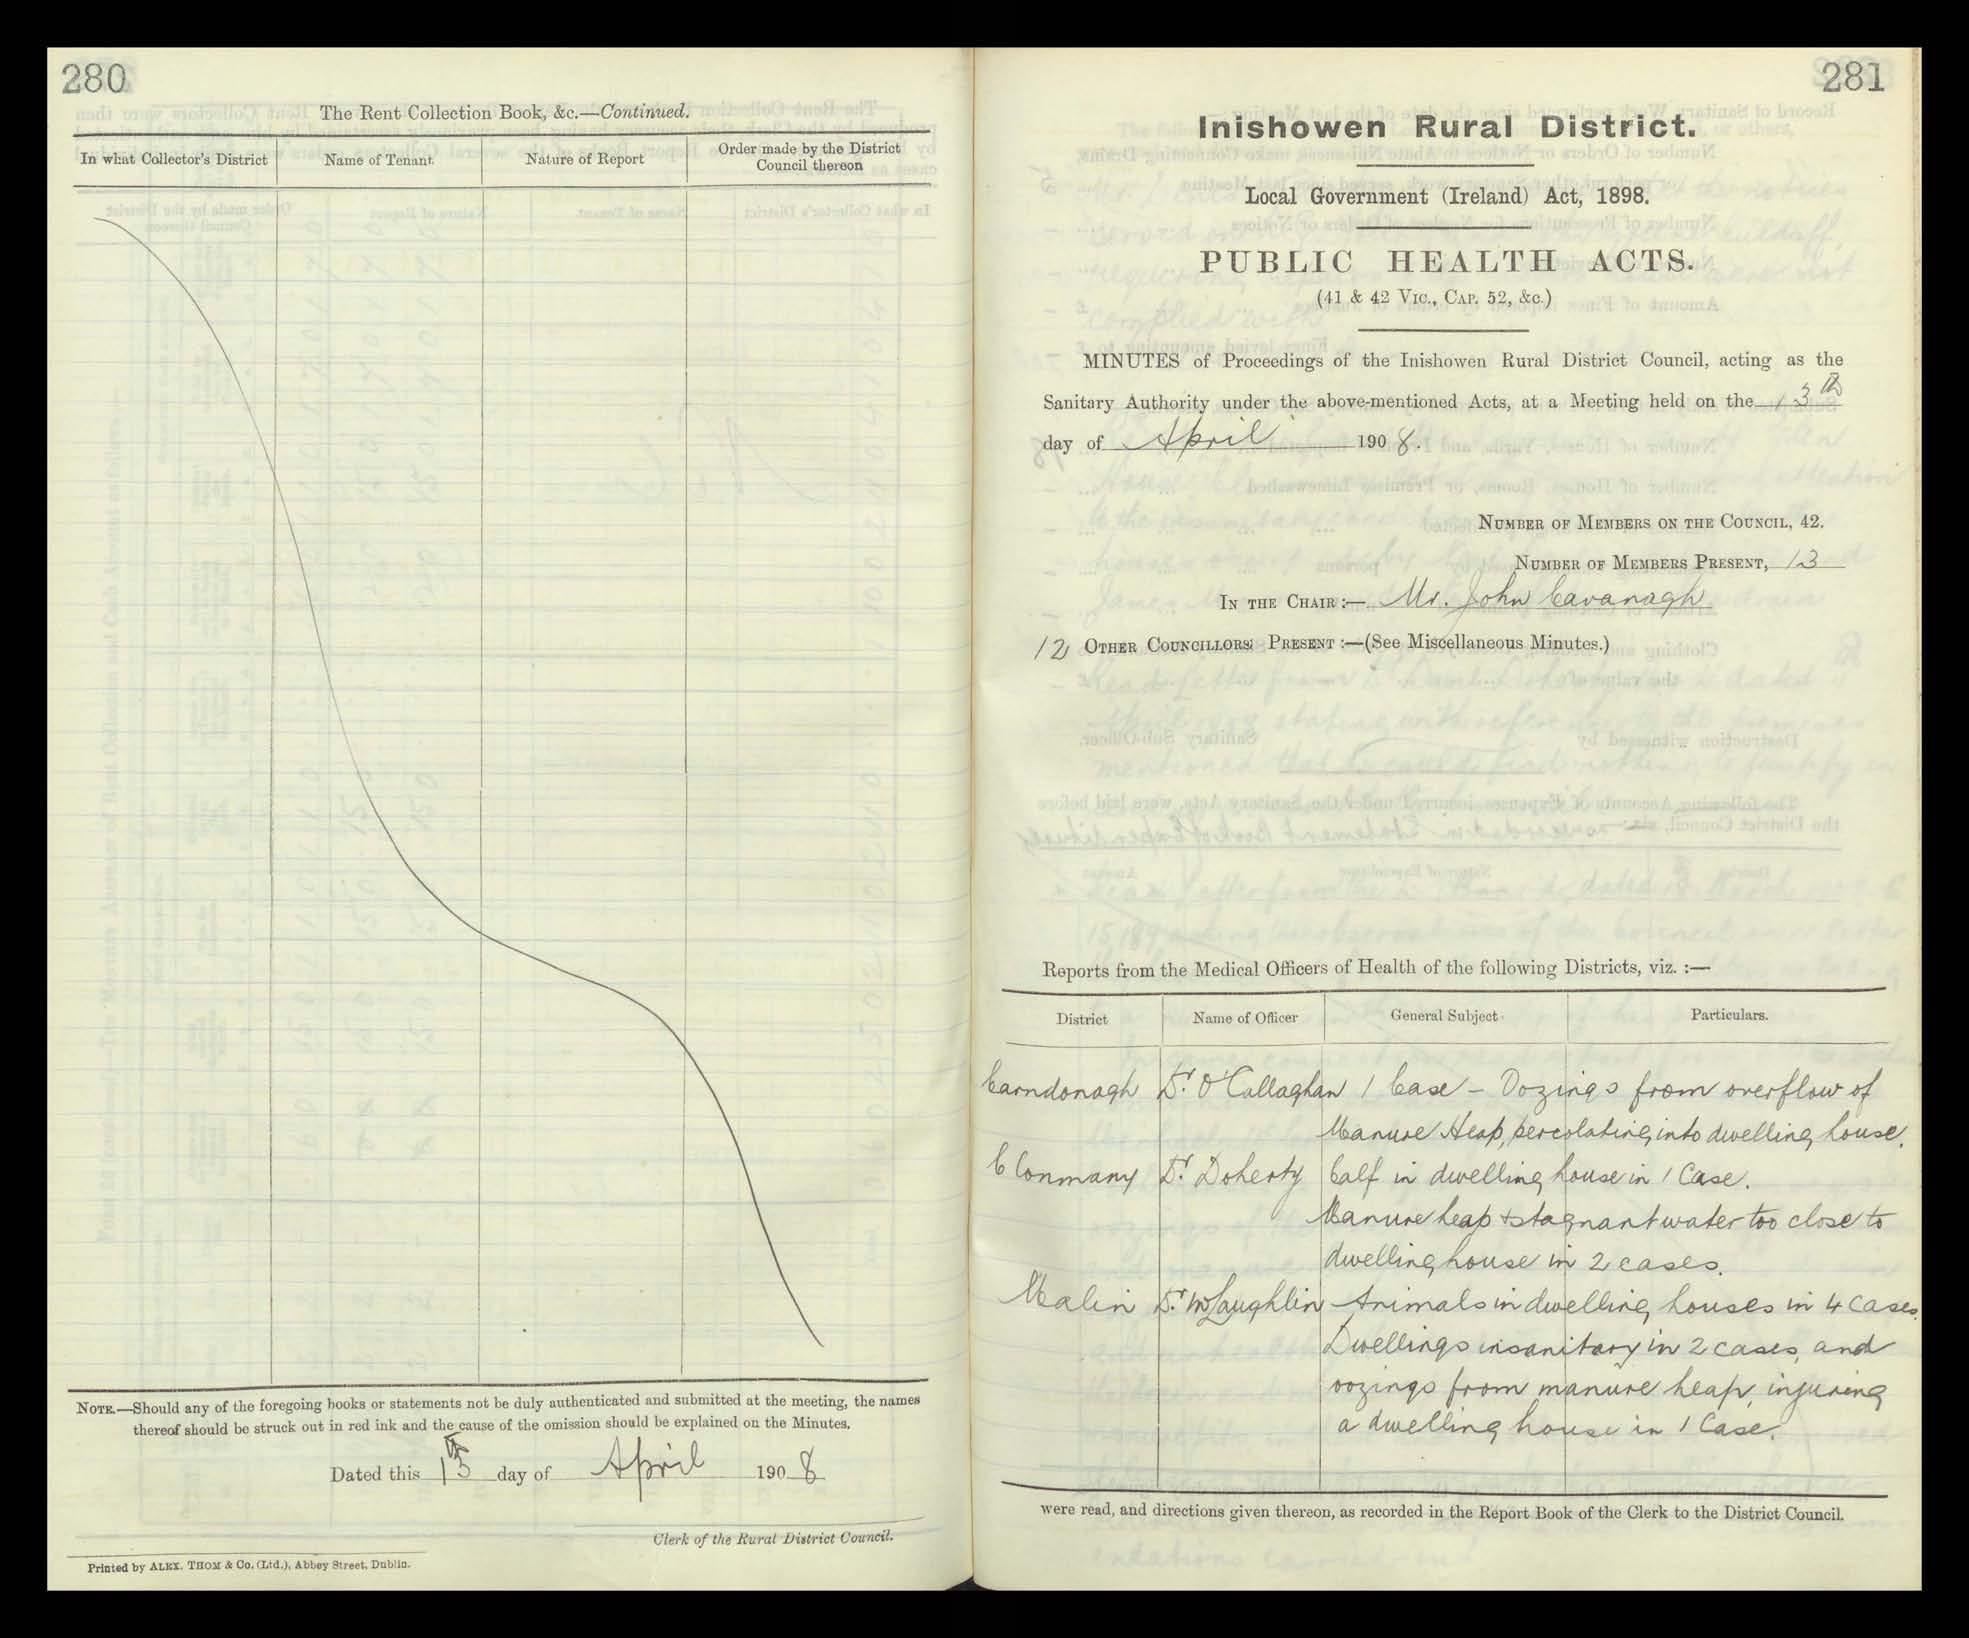 280
The Rent Collection Book, &c.—Continued.
In what Collector's District
Name of Tenant.
Nature of Report
Order made by the District
Council thereon
NOTE.—Should any of the foregoing books or statements not be duly authenticated and submitted at the meeting, the names
thereof should be struck out in red ink and the cause of the omission should be explained on the Minutes.
Dated this 13th day of April 1908
Clerk of the Rural District Council.
Printed by ALEX. THOM & Co. (Ltd.), Abbey Street, Dublin.
281
Inishowen Rural District.
Local Government (Ireland) Act, 1898.
PUBLIC HEALTH ACTS.
(41 & 42 VIC., CAP. 52, &c.)
MINUTES of Proceedings of the Inishowen Rural District Council, acting as the
Sanitary Authority under the above-mentioned Acts, at a Meeting held on the 13th
day of April 1908.
NUMBER OF MEMBERS ON THE COUNCIL, 42.
NUMBER OF MEMBERS PRESENT, 13
IN THE CHAIR :— Mr. John Cavanagh
12 OTHER COUNCILLORS PRESENT :—(See Miscellaneous Minutes.)
Reports from the Medical Officers of Health of the following Districts, viz. :—
District
Name of Officer
General Subject
Particulars.
Carndonagh Dr. O'Callaghan 1 Case – Oozings from overflow of
Manure Heap, percolating into dwelling house.
C Conmany Dr. Doherty Calf in dwelling house in 1 Case.
Manure heap & stagnant water too close to
dwelling house in 2 cases.
Malin Dr. McLaughlin Animals in dwelling houses in 4 cases.
Dwellings insanitary in 2 cases, and
oozings from manure heap, injuring
a dwelling house in 1 Case.
were read, and directions given thereon, as recorded in the Report Book of the Clerk to the District Council.